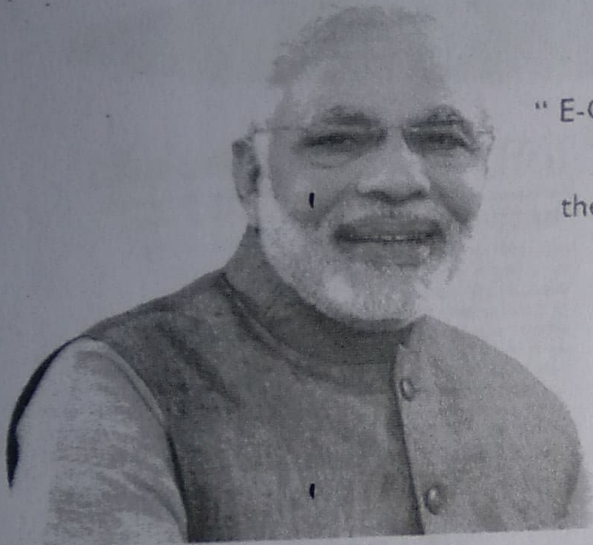 “ E-
the